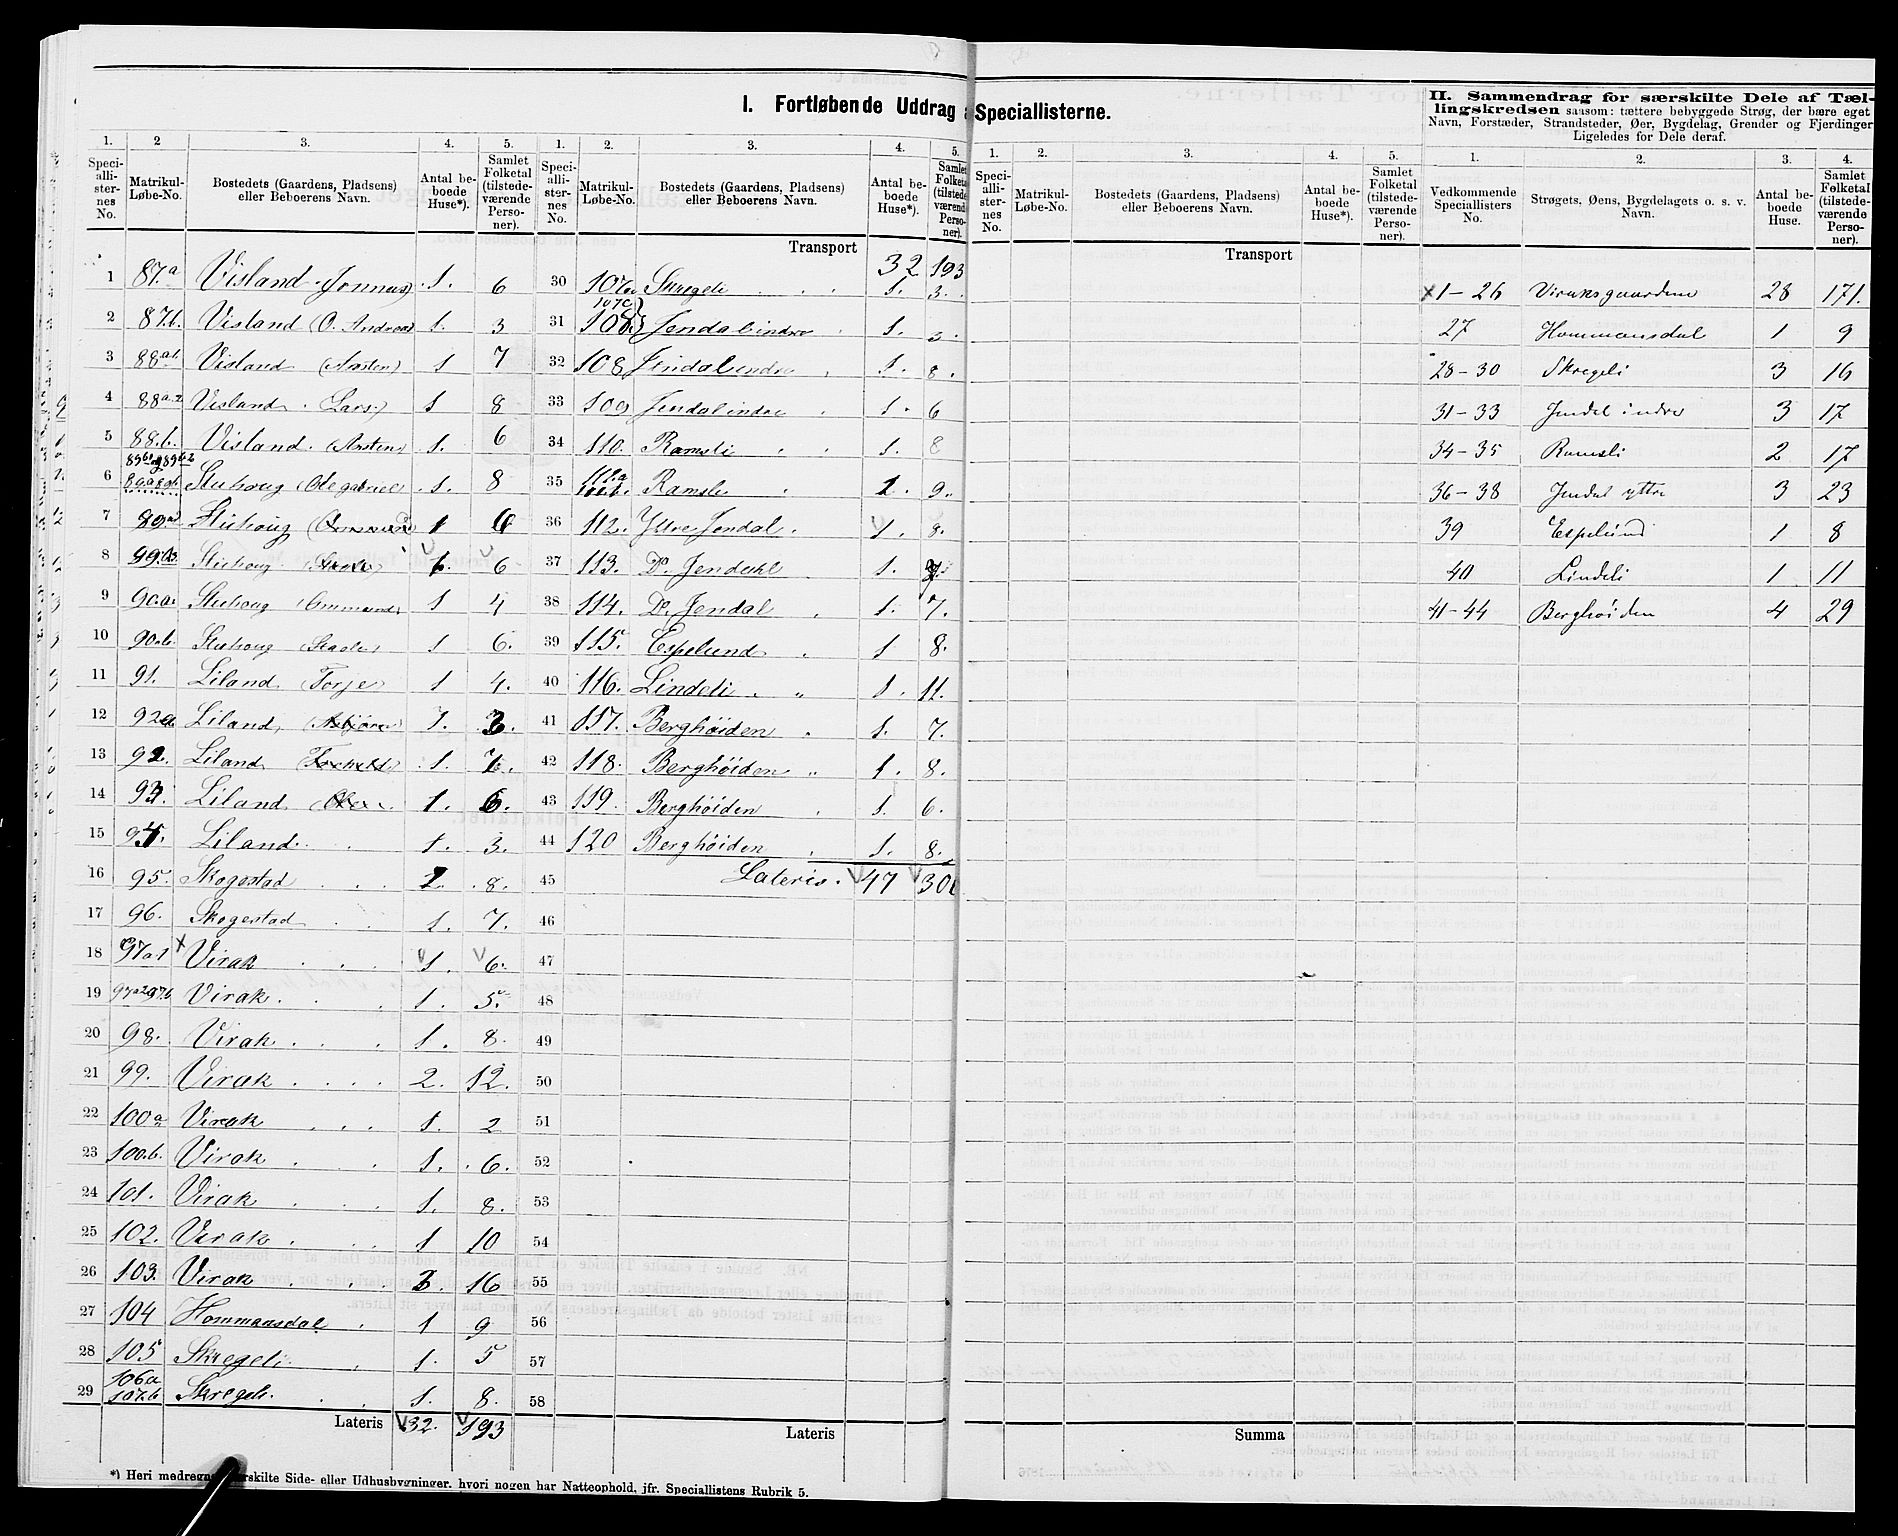 I. Fortløbende Uddrag a Speciallisterne.
1. 2 3. 4. 5. 1. 2. 3. 4. 5.
Speciallisternes No. Matrikul-Løbe-No. Bostedets (Gaardens, Pladsens) eller Beboerens Navn. Antal beboede Huse*). Samlet Folketal (tilstedeværende Personer).
Speciallisternes No. Matrikul-Løbe-No. Bostedets (Gaardens, Pladsens) eller Beboerens Navn. Antal beboede Huse*). Samlet Folketal (tilstedeværende Personer).
1 87.a Visland (Jonnas) 1. 6
2 87.b. Visland (O. Andreas) 1. 3
3 88a1. Visland (Aasten) 1 7
4 88a.2 Visland (Lars) 1 8
5 88.b. Visland (Aasten) 1. 6
6 Stuhoug (Ole gabriel) 1. 8
7 Stuhoug 1 6
8 Stuhoug 1. 6
9 90.a. Stuhoug (Ommund) 1 4
10 90.b. Stuhoug 1 6.
11 91. Liland (Torje) 1 4.
12 92a Liland (Asbjørn) 1. 3.
13 92. Liland 1. 7.
14 93. Liland 1. 6.
15 94. Liland 1. 3.
16 95. Skogestad 2. 8.
17 96. Skogestad 1. 7.
18 97a1 × Virak 1. 6.
19 97a2 97.b Virak 1. 5.
20 98. Virak 1. 8.
21 99. Virak 2. 12.
22 100a Virak 1. 2
23 100.b. Virak 1. 6.
24 101. Virak 1. 8.
25 102. Virak 1 10
26 103. Virak 3. 16
27 104 Hommansdal 1 9
28 105 Skregeli 1. 5
29 106a 107.b Skregeli. 1. 8.
Lateris 32. 193
Transport 32 193
30 107a Skregeli 1. 3.
31 107c 108 Jendal indre 1. 3.
32 108 Jendal indre 1. 8.
33 109 Jendal indre 1. 6
34 110. Ramsli 1. 8
35 111.a Ramsli 1. 9.
36 112. Yttre Jendal 1. 8.
37 113. Do. Jendahl 1.
38 114. Do. Jendal 1. 7.
39 115. Espelund 1 8.
40 116. Lindeli 1. 11.
41 117. Berghöiden 1. 7.
42 118. Berghöiden 1. 8.
43 119. Berghöiden 1. 6.
44 120 Berghöiden 1. 8.
45 Lateris. 47 301
46
47
48
49
50
51
52
53
54
55
56
57
58
Lateris
*) Heri medregnes særskilte Side- eller Udhusbygninger, hvori nogen har Natteophold, jfr. Speciallistens Rubrik 5.
1. 2. 3. 4. 5.
Speciallisternes No. Matrikul-Løbe-No. Bostedets (Gaardens, Pladsens) eller Beboerens Navn. Antal beboede Huse*). Samlet Folketal (tilstedeværende Personer).
Transport
Summa
II. Sammendrag for særskilte Dele af Tællingskredsen saasom: tættere bebyggede Strøg, der bære eget
Navn, Forstæder, Strandsteder, Øer, Bygdelag, Grender og Fjerdinger
Ligeledes for Dele deraf.
1. 2. 3. 4.
Vedkommende Speciallisters No. Strøgets, Øens, Bygdelagets o. s. v. Navn. Antal beboede Huse. Samlet Folketal (tilstedeværende Personer).
×1-26 Viraksgaardene 28 171.
27 Hommansdal 1 9
28-30 Skregeli 3 16
31-33 Jendal indre 3 17
34-35 Ramsli 2 17
36-38 Jendal yttre 3 23
39 Espelund 1 8
40 Lindeli 1 11
41-44 Berghöiden 4 29